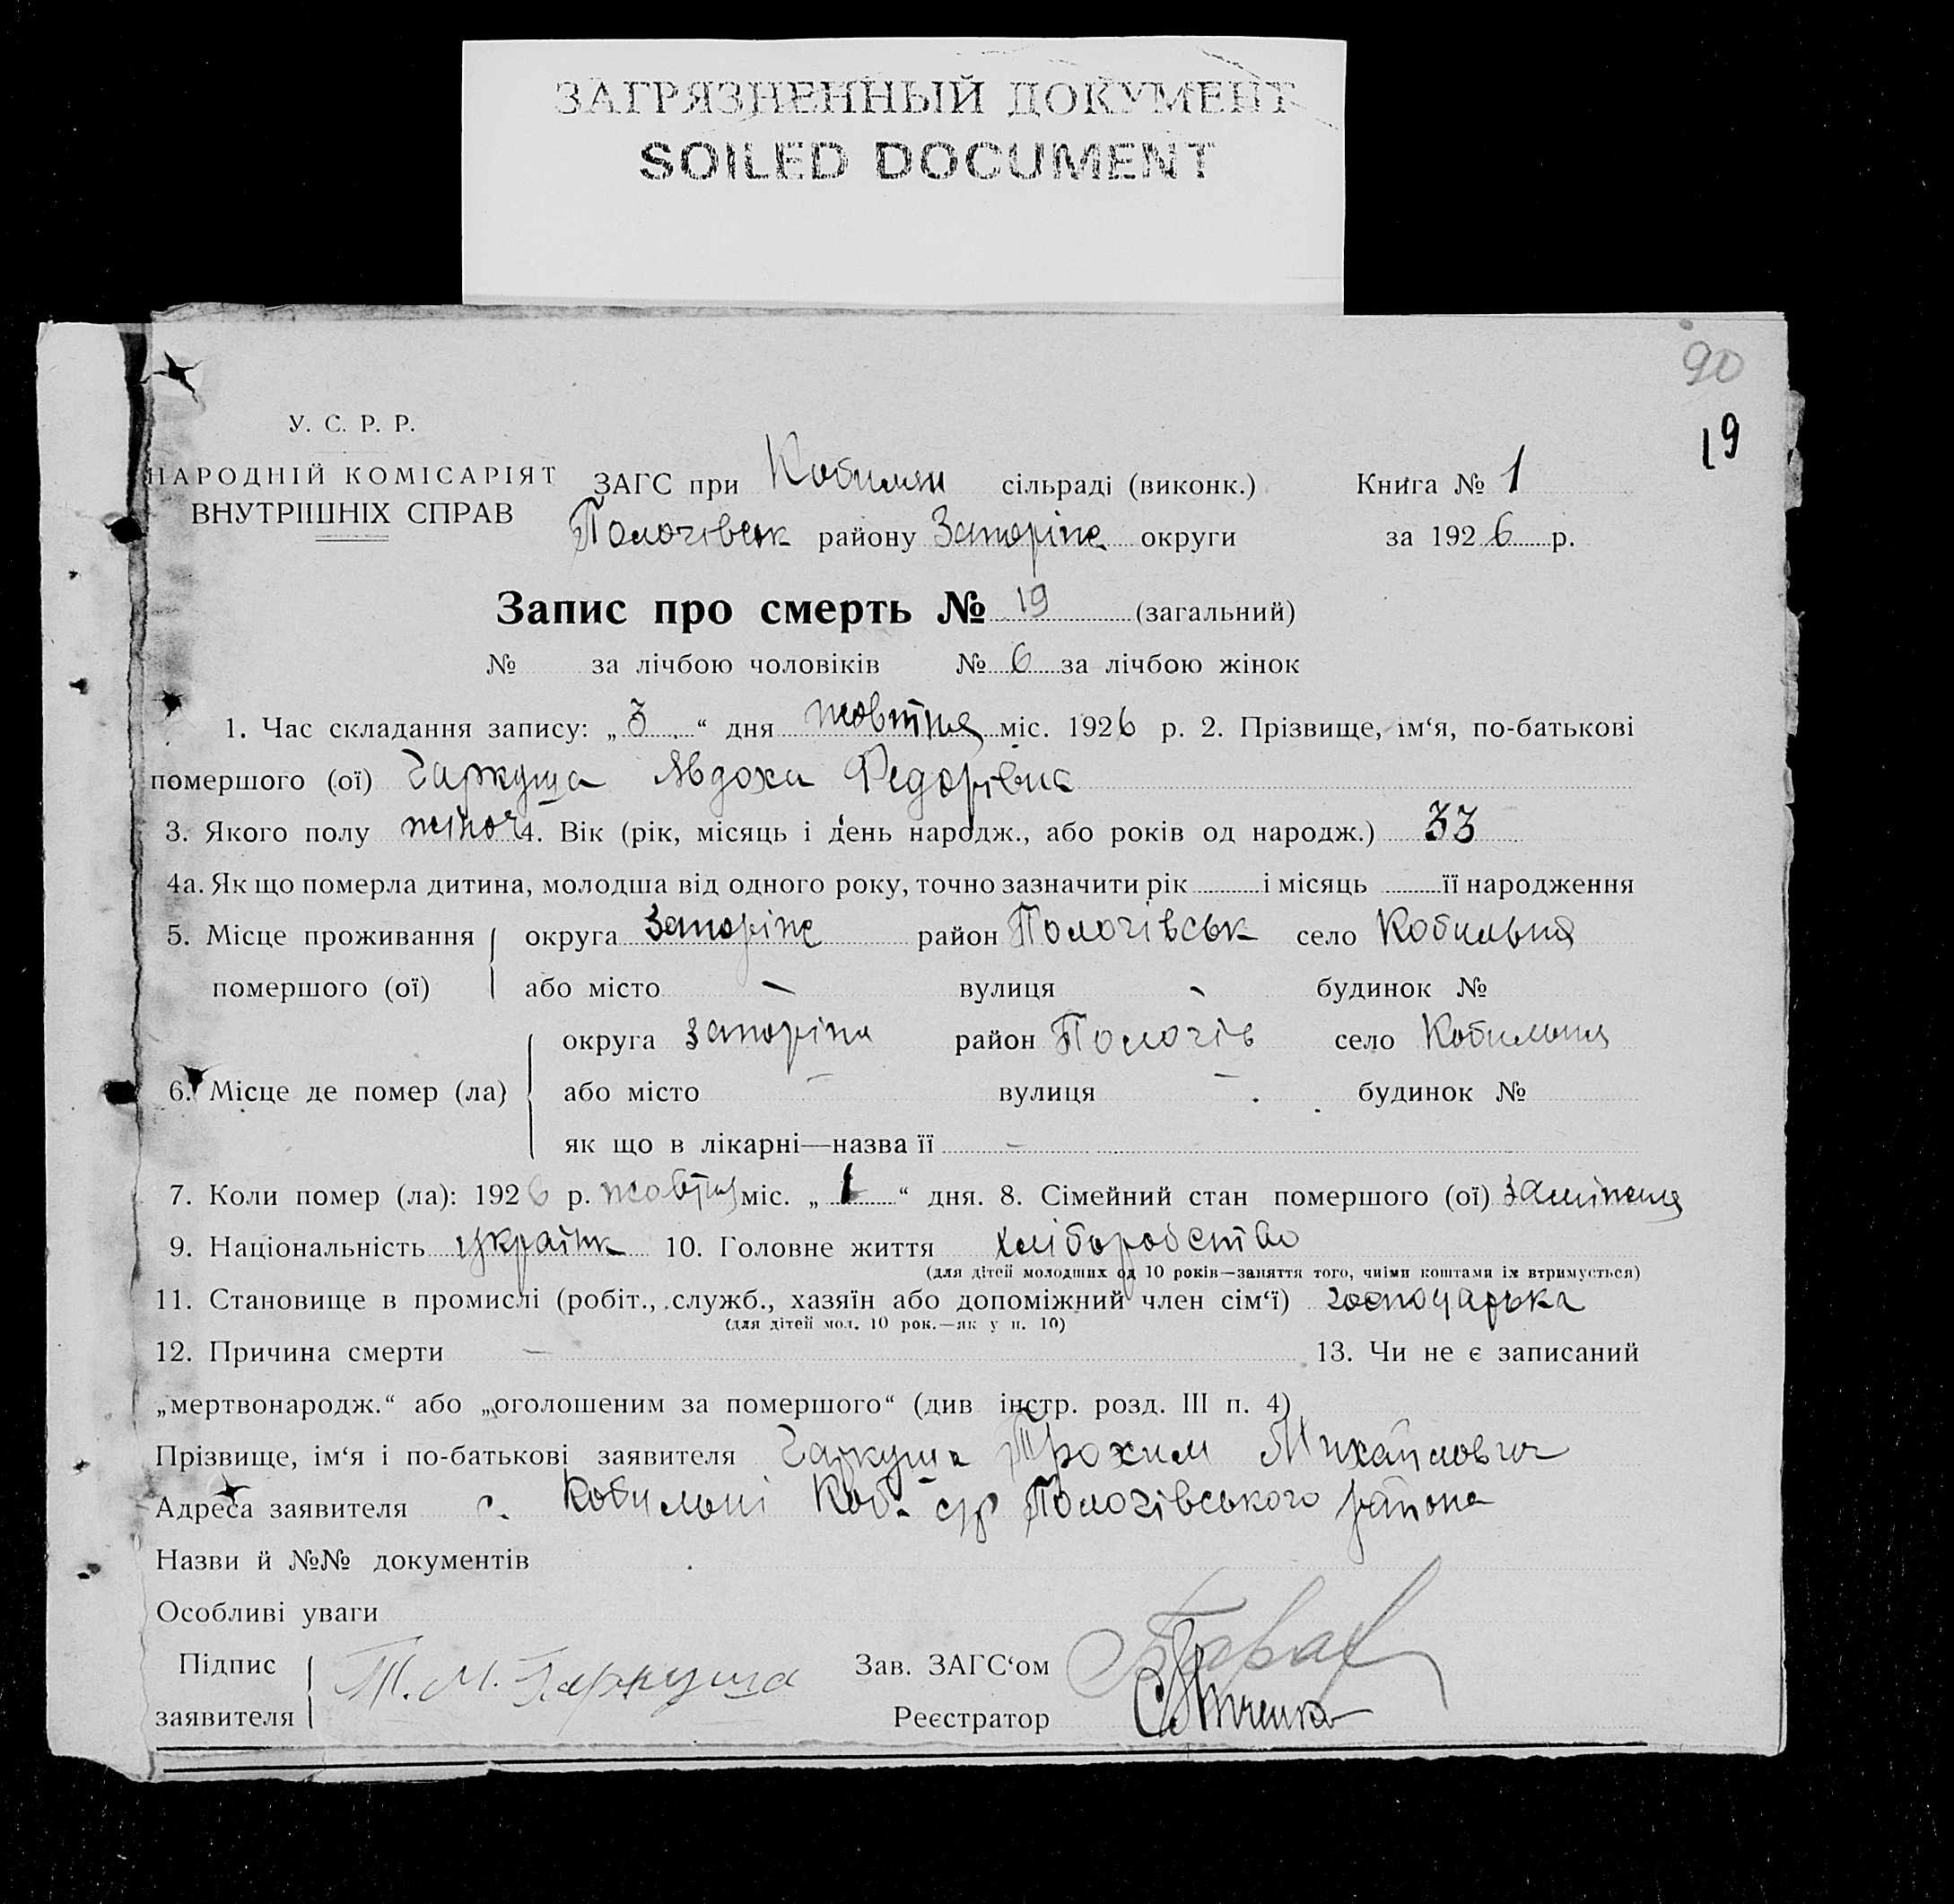 ЗАГРЯЗНЕННЫЙ ДОКУМЕНТ
SOILED DOCUMENT
90
19
У. С. Р. Р.
НАРОДНІЙ КОМІСАРІЯТ
ВНУТРІШНІХ СПРАВ
ЗАГС при Кобилян сільраді (виконк.) Книга № 1
Пологівськ району Запоріже округи за 1926 р.
Запис про смерть № 19 (загальний)
№ за лічбою чоловіків № 6 за лічбою жінок
1. Час складання запису: „3“ дня жовтня міс. 1926 р. 2. Прізвище, ім‘я, по-батькові
помершого (ої) Гаркуша Явдоха Федорівна
3. Якого полу жіноч 4. Вік (рік, місяць і день народж., або років од народж.) 33
4а. Як що померла дитина, молодша від одного року, точно зазначити рік і місяць її народження
5. Місце проживання округа Запоріже район Пологівськ село Кобильня
помершого (ої) або місто – вулиця – будинок №
округа Запоріжа район Пологів село Кобильня
6. Місце де помер (ла) або місто – вулиця – будинок №
як що в лікарні—назва її –
7. Коли помер (ла): 1926 р. жовтня міс. „1“ дня. 8. Сімейний стан помершого (ої) заміжня
9. Національність україн 10. Головне життя хліборобство
(для дітей молодших од 10 років—заняття того, чиїми коштами їх втримується)
11. Становище в промислі (робіт., служб., хазяїн або допоміжний член сім‘ї) господарька
(для дітей мол. 10 рок.—як у п. 10)
12. Причина смерти – 13. Чи не є записаний
„мертвонародж.“ або „оголошеним за помершого“ (див інстр. розд. III п. 4)
Прізвище, ім‘я і по-батькові заявителя Гаркуша Трохим Михайлович
Адреса заявителя с. Кобильні Коб. с/р Пологівського района
Назви й №№ документів
Особливі уваги
Підпис заявителя Т. М. Гаркуша Зав. ЗАГС‘ом
Реєстратор